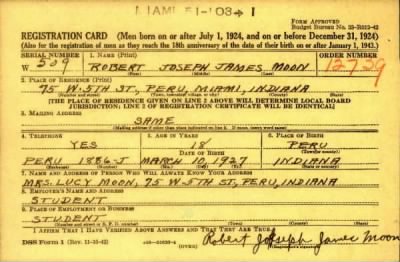 MIAMI 51-103-1
FORM APPROVED
Budget Bureau No. 33-R012-42
REGISTRATION CARD (Men born on or after July 1, 1924, and on or before December 31, 1924)
(Also for the registration of men as they reach the 18th anniversary of the date of their birth on or after January 1, 1943.)
SERIAL NUMBER 1. NAME (Print) ORDER NUMBER
W 509 ROBERT JOSEPH JAMES MOON 12739
(First) (Middle) (Last)
2. PLACE OF RESIDENCE (Print)
75 W. 5TH ST., PERU, MIAMI, INDIANA
(Number and street) (Town, township, village, or city) (County) (State)
[THE PLACE OF RESIDENCE GIVEN ON LINE 2 ABOVE WILL DETERMINE LOCAL BOARD
JURISDICTION; LINE 2 OF REGISTRATION CERTIFICATE WILL BE IDENTICAL]
3. MAILING ADDRESS
SAME
[Mailing address if other than place indicated on line 2. If same, insert word same]
4. TELEPHONE 5. AGE IN YEARS 6. PLACE OF BIRTH
YES 18 PERU
DATE OF BIRTH (Town or county)
PERU 1886-J MARCH 10, 1927 INDIANA
(Exchange) (Number) (Mo.) (Day) (Yr.) (State or country)
7. NAME AND ADDRESS OF PERSON WHO WILL ALWAYS KNOW YOUR ADDRESS
MRS. LUCY MOON, 75 W. 5TH ST., PERU, INDIANA
8. EMPLOYER'S NAME AND ADDRESS
STUDENT
9. PLACE OF EMPLOYMENT OR BUSINESS
STUDENT
(Number and street or R. F. D. number) (Town) (County) (State)
I AFFIRM THAT I HAVE VERIFIED ABOVE ANSWERS AND THAT THEY ARE TRUE.
DSS Form 1 (Rev. 11-16-42) (OVER) Robert Joseph James Moon